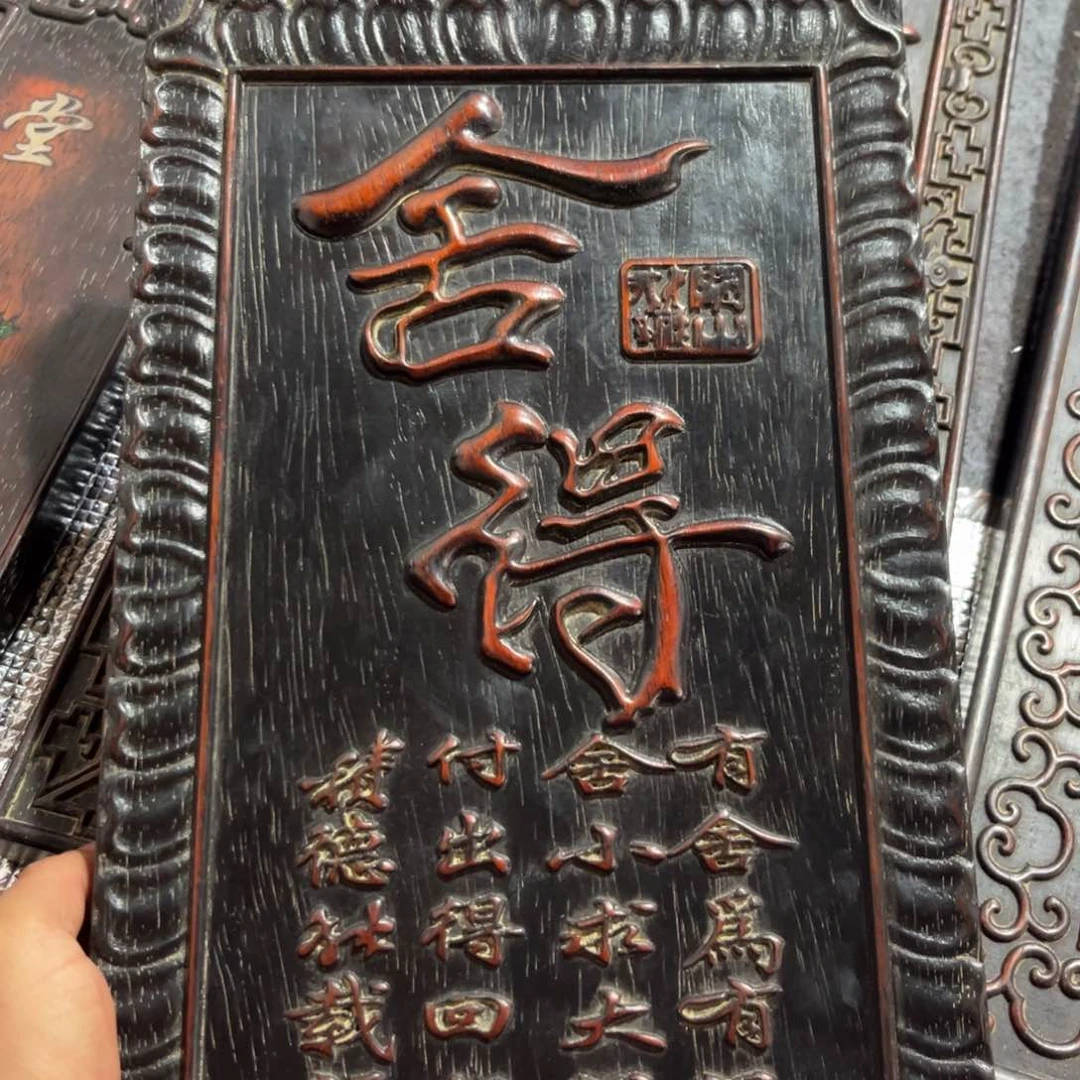 舍得
有舍為有
舍小求大
付出得回
積德
載
堂